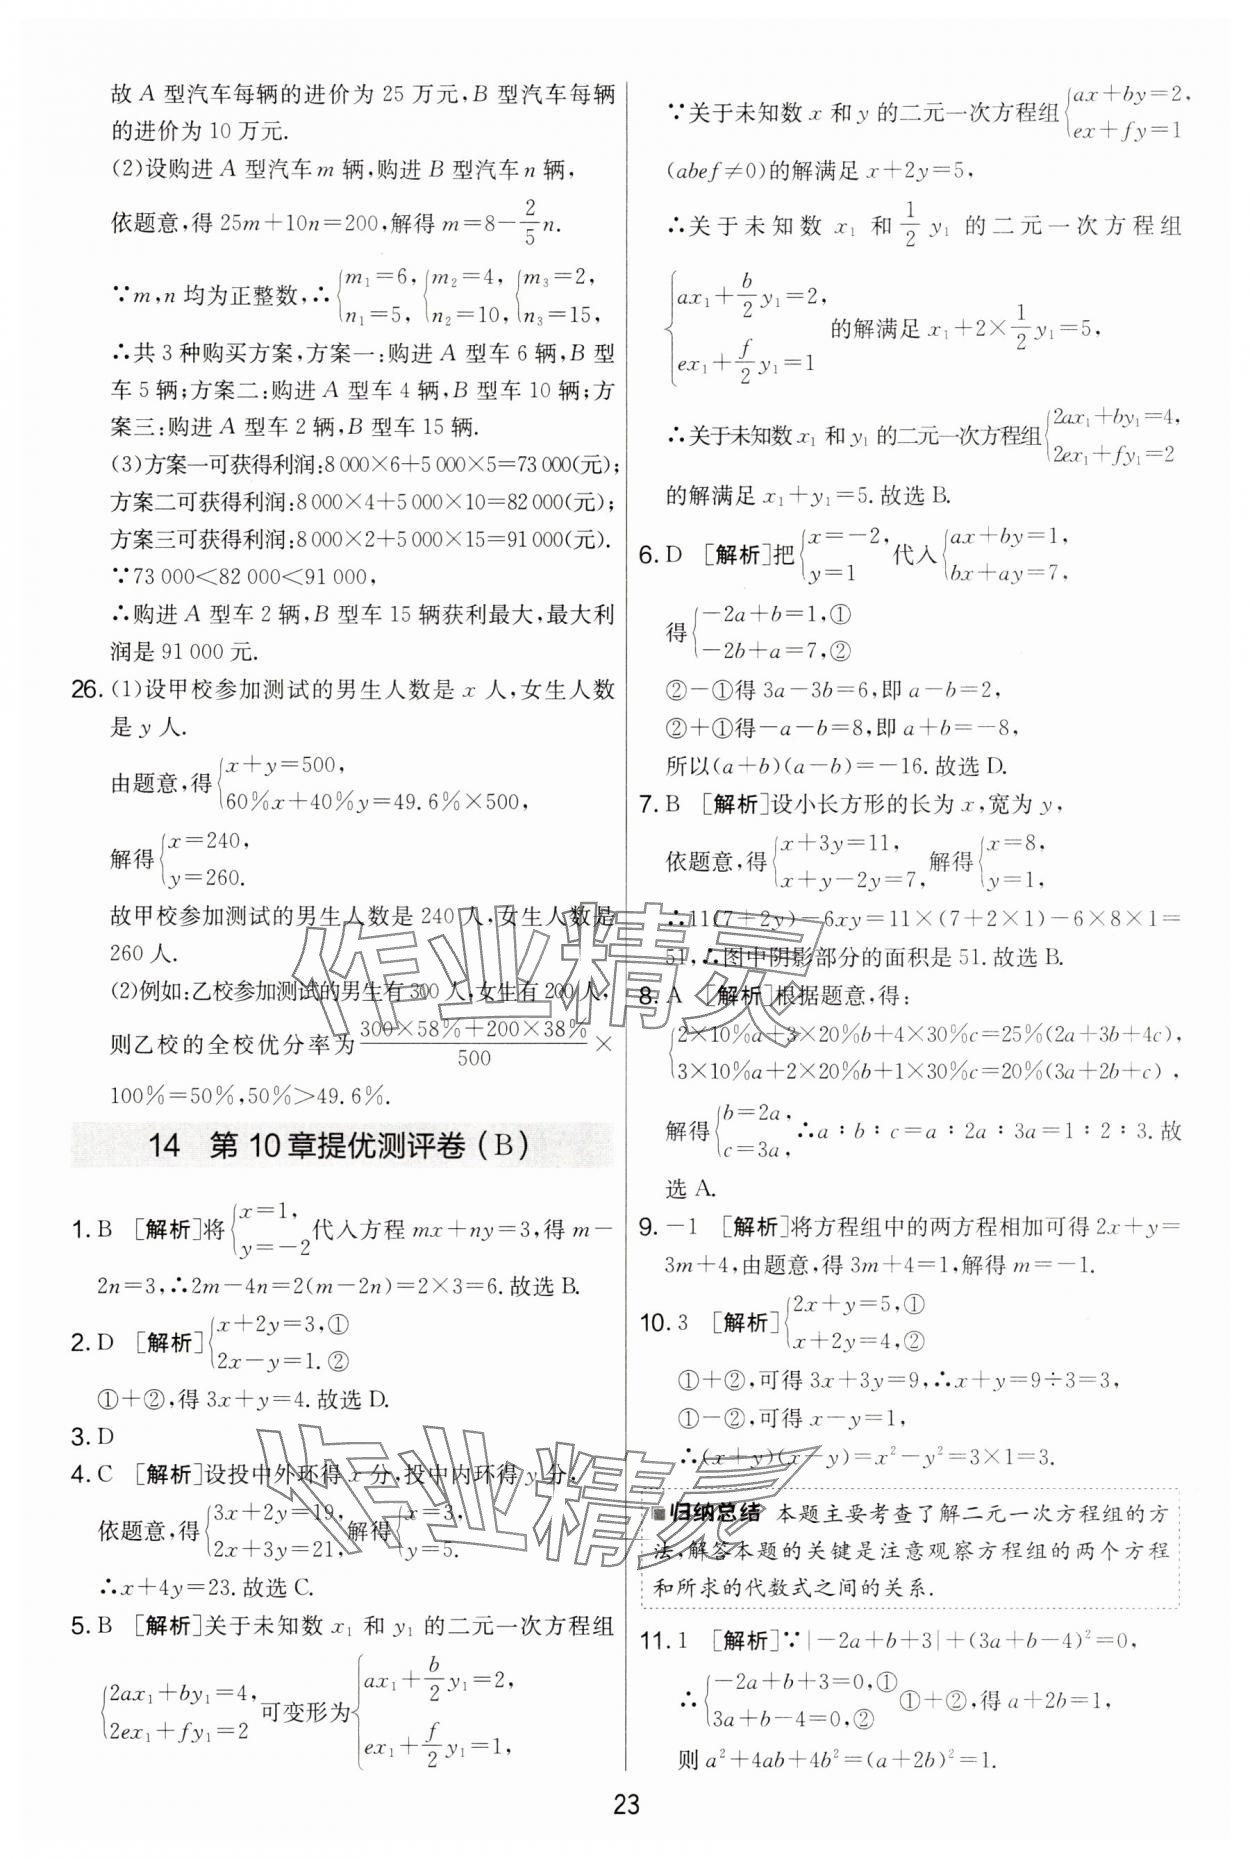 故 A 型汽车每辆的进价为 25 万元,B 型汽车每辆
的进价为 10 万元.
(2)设购进 A 型汽车 m 辆,购进 B 型汽车 n 辆,
依题意,得 25m+10n=200,解得 m=8-\frac{2}{5}n.
∵m,n 均为正整数,∴{m₁=6, n₁=5, {m₂=4, n₂=10, {m₃=2, n₃=15,
∴共 3 种购买方案,方案一:购进 A 型车 6 辆,B 型
车 5 辆;方案二:购进 A 型车 4 辆,B 型车 10 辆;方
案三:购进 A 型车 2 辆,B 型车 15 辆.
(3)方案一可获得利润:8 000×6+5 000×5=73 000(元);
方案二可获得利润:8 000×4+5 000×10=82 000(元);
方案三可获得利润:8 000×2+5 000×15=91 000(元).
∵73 000<82 000<91 000,
∴购进 A 型车 2 辆,B 型车 15 辆获利最大,最大利
润是 91 000 元.
26. (1)设甲校参加测试的男生人数是 x 人,女生人数
是 y 人.
由题意,得{x+y=500, 60%x+40%y=49.6%×500,
解得{x=240, y=260.
故甲校参加测试的男生人数是 240 人,女生人数是
260 人.
(2)例如:乙校参加测试的男生有 300 人,女生有 200 人,
则乙校的全校优分率为\frac{300×58%+200×38%}{500}×
100%=50%,50%>49.6%.
14 第 10 章提优测评卷(B)
1. B [解析]将{x=1, y=-2代入方程 mx+ny=3,得 m-
2n=3,∴2m-4n=2(m-2n)=2×3=6.故选 B.
2. D [解析]{x+2y=3,① 2x-y=1.②
①+②,得 3x+y=4.故选 D.
3. D
4. C [解析]设投中外环得 x 分,投中内环得 y 分,
依题意,得{3x+2y=19, 2x+3y=21,解得{x=3, y=5.
∴x+4y=23.故选 C.
5. B [解析]关于未知数 x₁ 和 y₁ 的二元一次方程组
{2ax₁+by₁=4, 2ex₁+fy₁=2可变形为{ax₁+\frac{b}{2}y₁=2, ex₁+\frac{f}{2}y₁=1,
∵关于未知数 x 和 y 的二元一次方程组{ax+by=2, ex+fy=1
(abef≠0)的解满足 x+2y=5,
∴关于未知数 x₁ 和 \frac{1}{2}y₁ 的二元一次方程组
{ax₁+\frac{b}{2}y₁=2, ex₁+\frac{f}{2}y₁=1 的解满足 x₁+2×\frac{1}{2}y₁=5,
∴关于未知数 x₁ 和 y₁ 的二元一次方程组{2ax₁+by₁=4, 2ex₁+fy₁=2
的解满足 x₁+y₁=5.故选 B.
6. D [解析]把{x=-2, y=1代入{ax+by=1, bx+ay=7,
得{-2a+b=1,① -2b+a=7,②
②-①得 3a-3b=6,即 a-b=2,
②+①得-a-b=8,即 a+b=-8,
所以(a+b)(a-b)=-16.故选 D.
7. B [解析]设小长方形的长为 x,宽为 y,
依题意,得{x+3y=11, x+y-2y=7,解得{x=8, y=1,
∴11(7+2y)-6xy=11×(7+2×1)-6×8×1=
51,∴图中阴影部分的面积是 51.故选 B.
8. A [解析]根据题意,得:
{2×10%a+3×20%b+4×30%c=25%(2a+3b+4c), 3×10%a+2×20%b+1×30%c=20%(3a+2b+c),
解得{b=2a, c=3a,∴a∶b∶c=a∶2a∶3a=1∶2∶3.故
选 A.
9. -1 [解析]将方程组中的两方程相加可得 2x+y=
3m+4,由题意,得 3m+4=1,解得 m=-1.
10. 3 [解析]{2x+y=5,① x+2y=4,②
①+②,可得 3x+3y=9,∴x+y=9÷3=3,
①-②,可得 x-y=1,
∴(x+y)(x-y)=x²-y²=3×1=3.
归纳总结 本题主要考查了解二元一次方程组的方
法,解答本题的关键是注意观察方程组的两个方程
和所求的代数式之间的关系.
11. 1 [解析]∵|-2a+b+3|+(3a+b-4)²=0,
∴{-2a+b+3=0,① 3a+b-4=0,②①+②,得 a+2b=1,
则 a²+4ab+4b²=(a+2b)²=1.
23
作业精灵
作业精灵